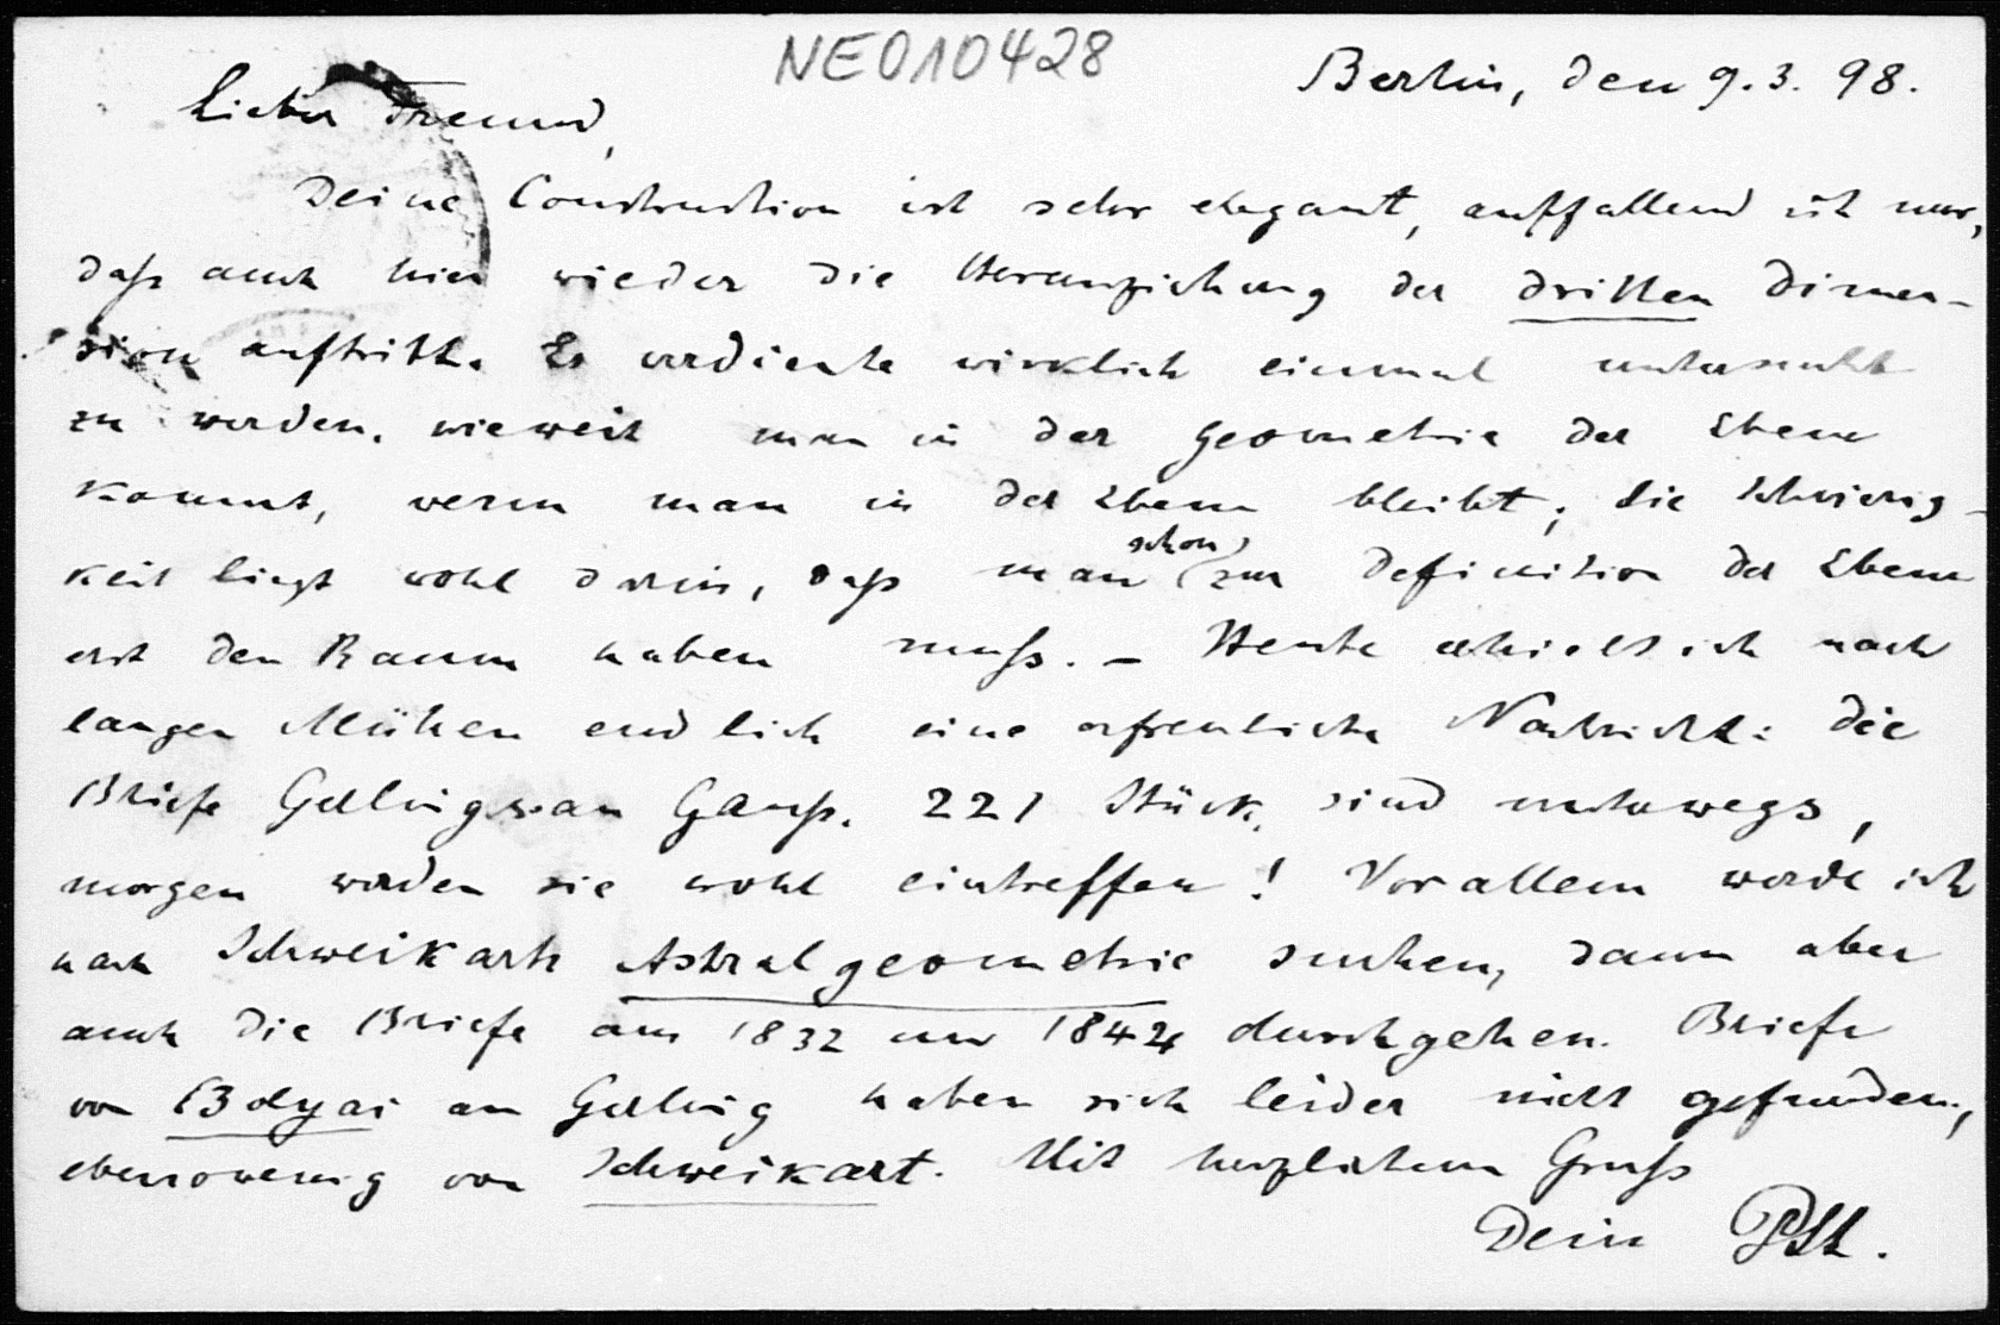 NE010428
Berlin, den 9.3.98.
Lieber Freund,
Deine Construction ist sehr elegant, auffallend ist nur,
daß auch hier wieder die Heranziehung der dritten Dimen-
sion auftritt. Es verdiente wirklich einmal untersucht
zu werden, wieweit man in der Geometrie der Ebene
kommt, wenn man in der Ebene bleibt; die Schwierig-
keit liegt wohl darin, daß man schon zur Definition der Ebene
erst den Raum haben muß. – Heute erhielt ich nach
langen Mühen endlich eine erfreuliche Nachricht: die
Briefe Gerlings an Gauß, 221 Stück, sind unterwegs,
morgen werden sie wohl eintreffen! Vor allem werde ich
nach Schweikarts Astralgeometrie suchen, dann aber
auch die Briefe aus 1832 und 1844 durchgehen. Briefe
von Bolyai an Gerling haben sich leider nicht gefunden,
ebensowenig von Schweikart. Mit herzlichem Gruß
Dein PSt.